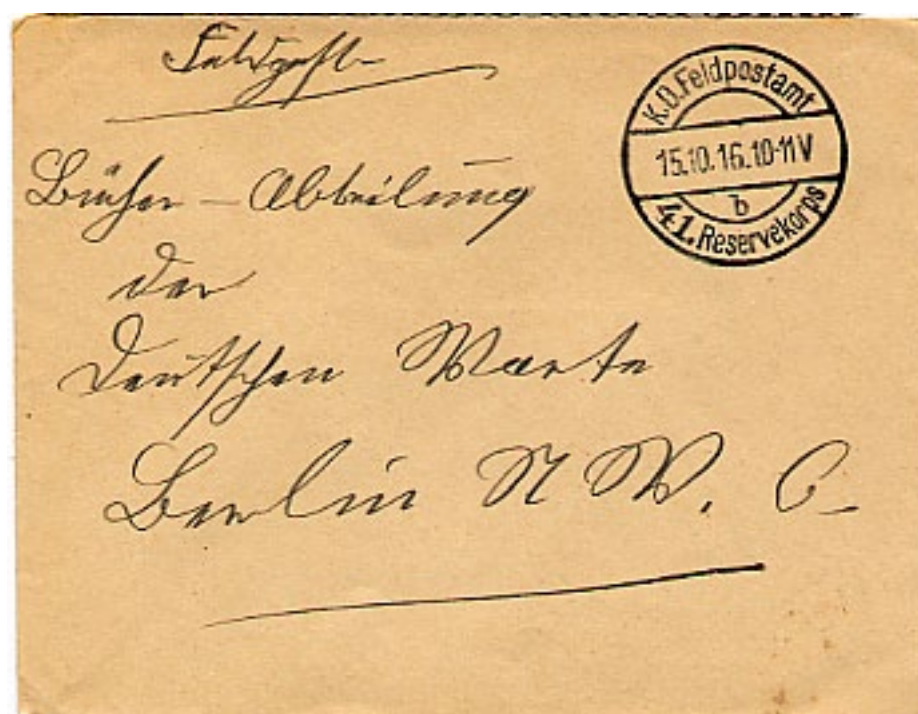 Feldpost
K.D.Feldpostamt
15.10.16.10-11V
b
41. Reservekorps
Bücher – Abteilung
der
Deutschen Warte
Berlin N W. 6